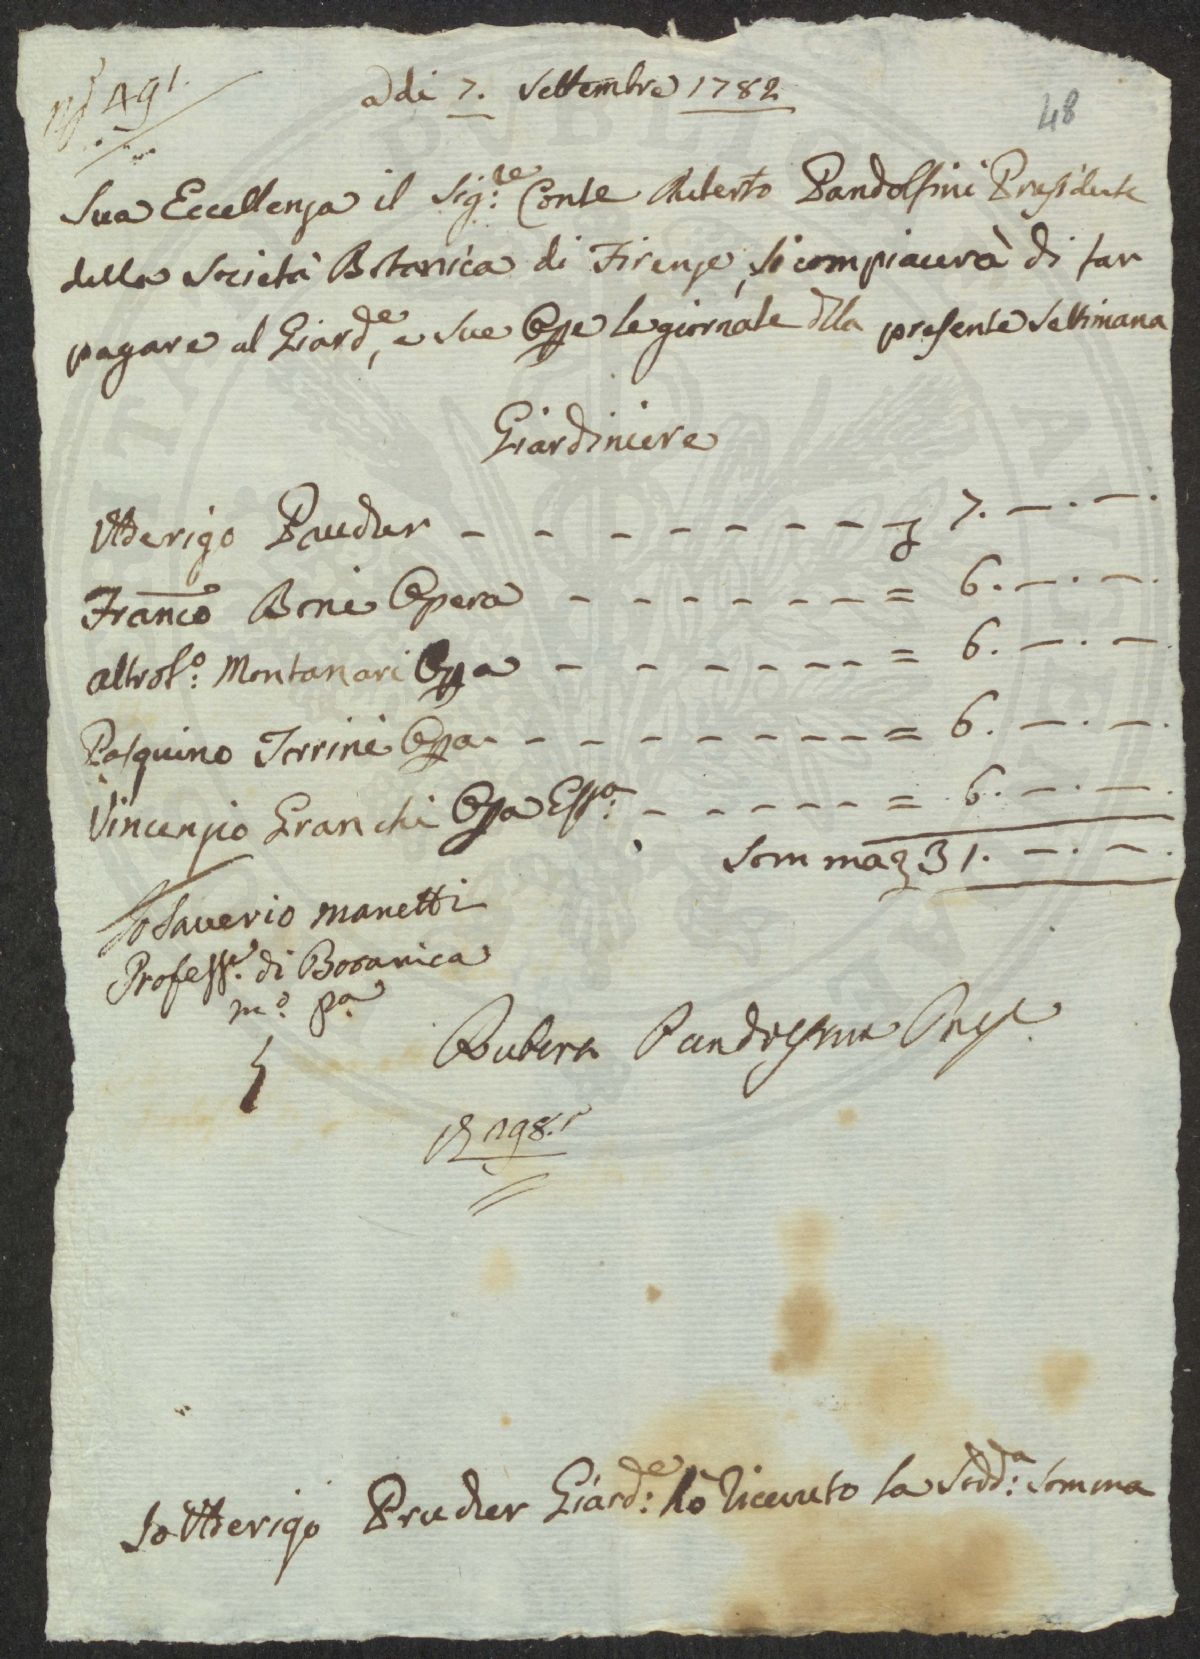 No 491.
adi 7. Settembre 1782
48
Sua Eccellenza il Sig.re Conte Ruberto Pandolfini Presidente
della Società Botanica di Firenze, si compiacerà di far
pagare al Giard.e, e sue Opge le giornate dlla presente Settimana
Giardiniere
Utterigo Pruder - - - - - - - 7. — . — .
Fran.co Boni Opera - - - - - - = 6. — . — .
altro f.o Montanari Opa - - - - - - = 6. — . —
Pasquino Terrini Opa - - - - - - - = 6. — . — .
Vincenzio Granchi Opa Es.a - - - - - = 6. — . — .
Somma 31. — . — .
Io Saverio Manetti
Profess.e di Botanica
m.o p.a
Ruberto Pandolfini Pres.
198.
Io Utterigo Pruder Giard.e hò ricevuto la Sodd.a Somma